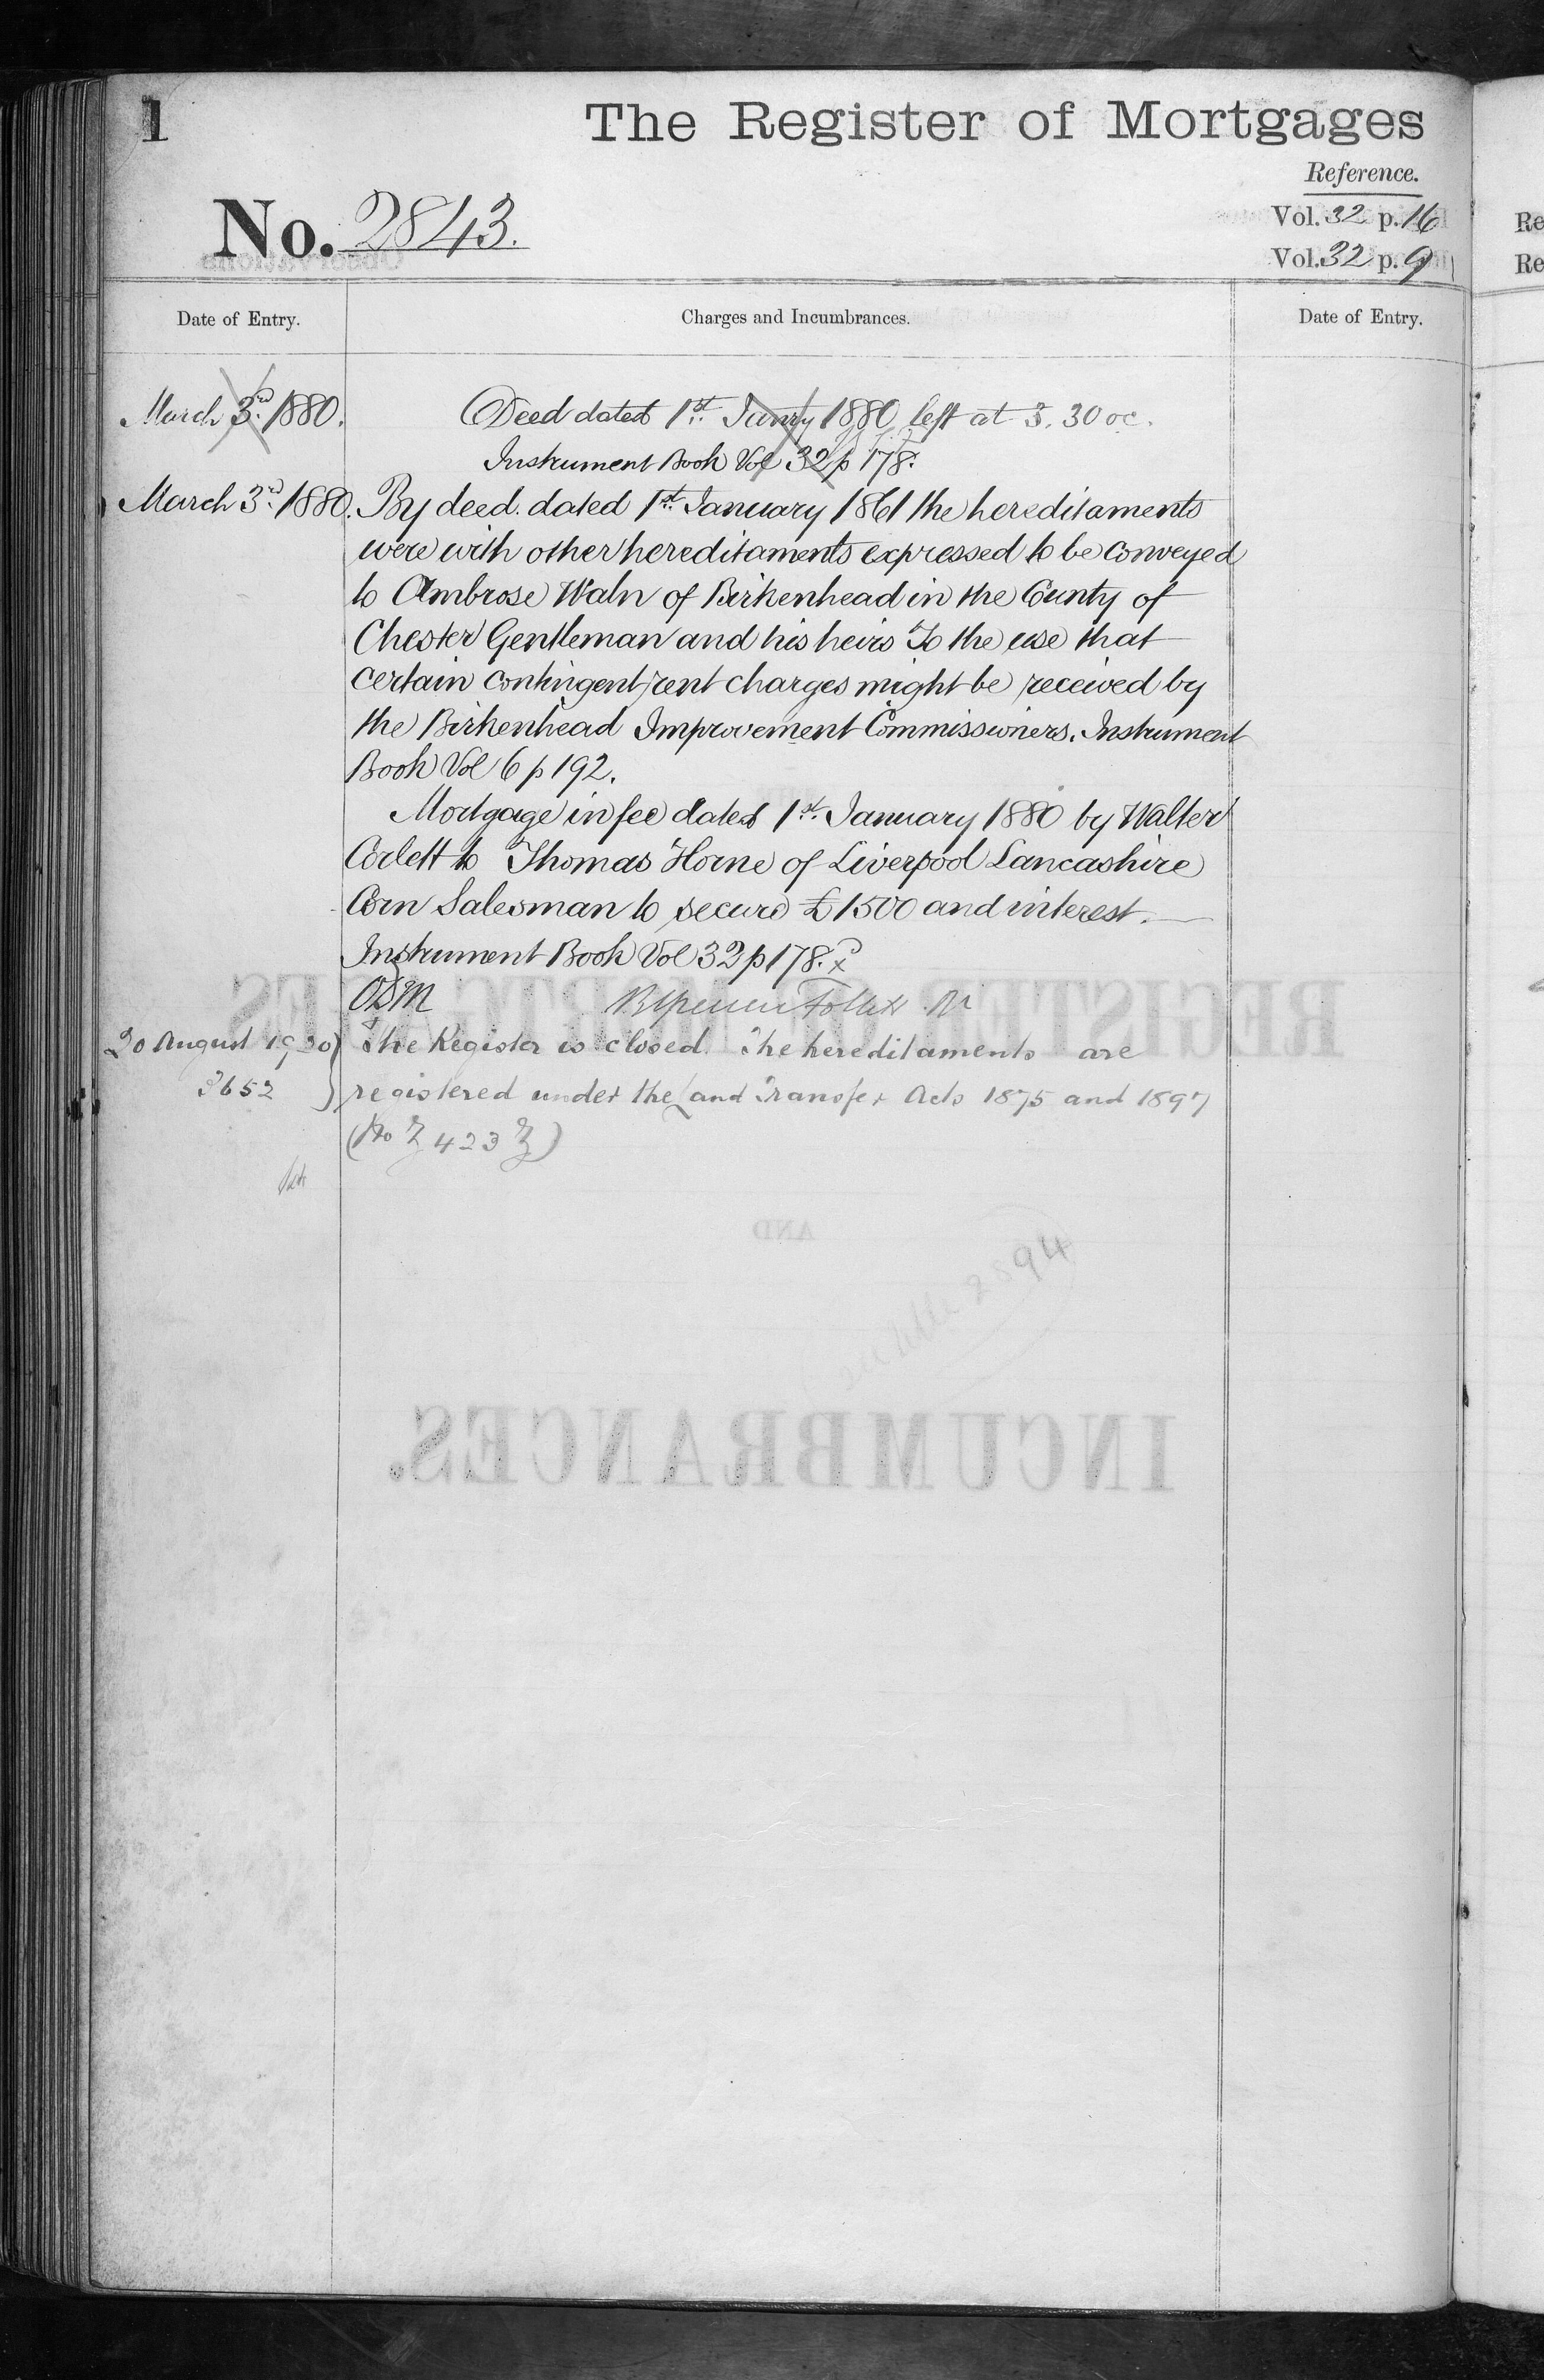 1
The Register of Mortgages
Reference.
No. 2843.
Vol. 32 p. 16
Vol. 32 p. 9
Date of Entry.
Charges and Incumbrances.
Date of Entry.
March 3rd. 1880.
Deed dated 1st. Janry 1880 left at 3.30 oc.
Instrument Book Vol 32 p 178.
March 3rd. 1880.
By deed dated 1st. January 1861 the hereditaments
were with other hereditaments expressed to be conveyed
to Ambrose Waln of Birkenhead in the County of
Chester Gentleman and his heirs To the use that
certain contingent rent charges might be received by
the Birkenhead Improvement Commissioners. Instrument
Book Vol 6 p 192.
Mortgage in fee dated 1st. January 1880 by Walter
Corlett to Thomas Horne of Liverpool Lancashire
Corn Salesman to secure £1500 and interest.
Instrument Book Vol 32 p 178.
20 August 1920
The Register is closed. The hereditaments are
3652
registered under the Land Transfer Acts 1875 and 1897
(No Z 423 Z)
REGISTER OF MORTGAGES
AND
2894
INCUMBRANCES.
Re
Re